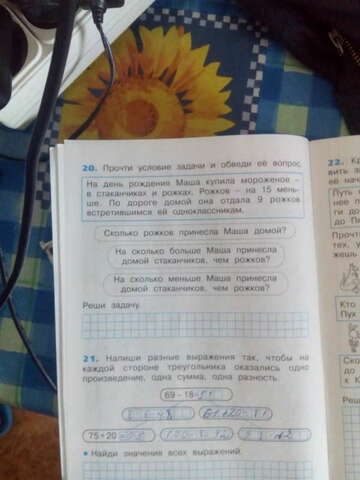 20. Прочти условие задачи и обведи её вопрос.
На день рождения Маша купила мороженое –
в стаканчиках и рожках. Рожков – на 15 мень-
ше. По дороге домой она отдала 9 рожков
встретившимся ей одноклассникам.
Сколько рожков принесла Маша домой?
На сколько больше Маша принесла
домой стаканчиков, чем рожков?
На сколько меньше Маша принесла
домой стаканчиков, чем рожков?
Реши задачу.
21. Напиши разные выражения так, чтобы на
каждой стороне треугольника оказались одно
произведение, одна сумма, одна разность.
69 – 18
75 + 20
• Найди значения всех выражений.
22.
вить за
её нач
Путь
нее п
ги до
до П
Прочт
тех,
жешь
Кто
Пух
Ско
до
к